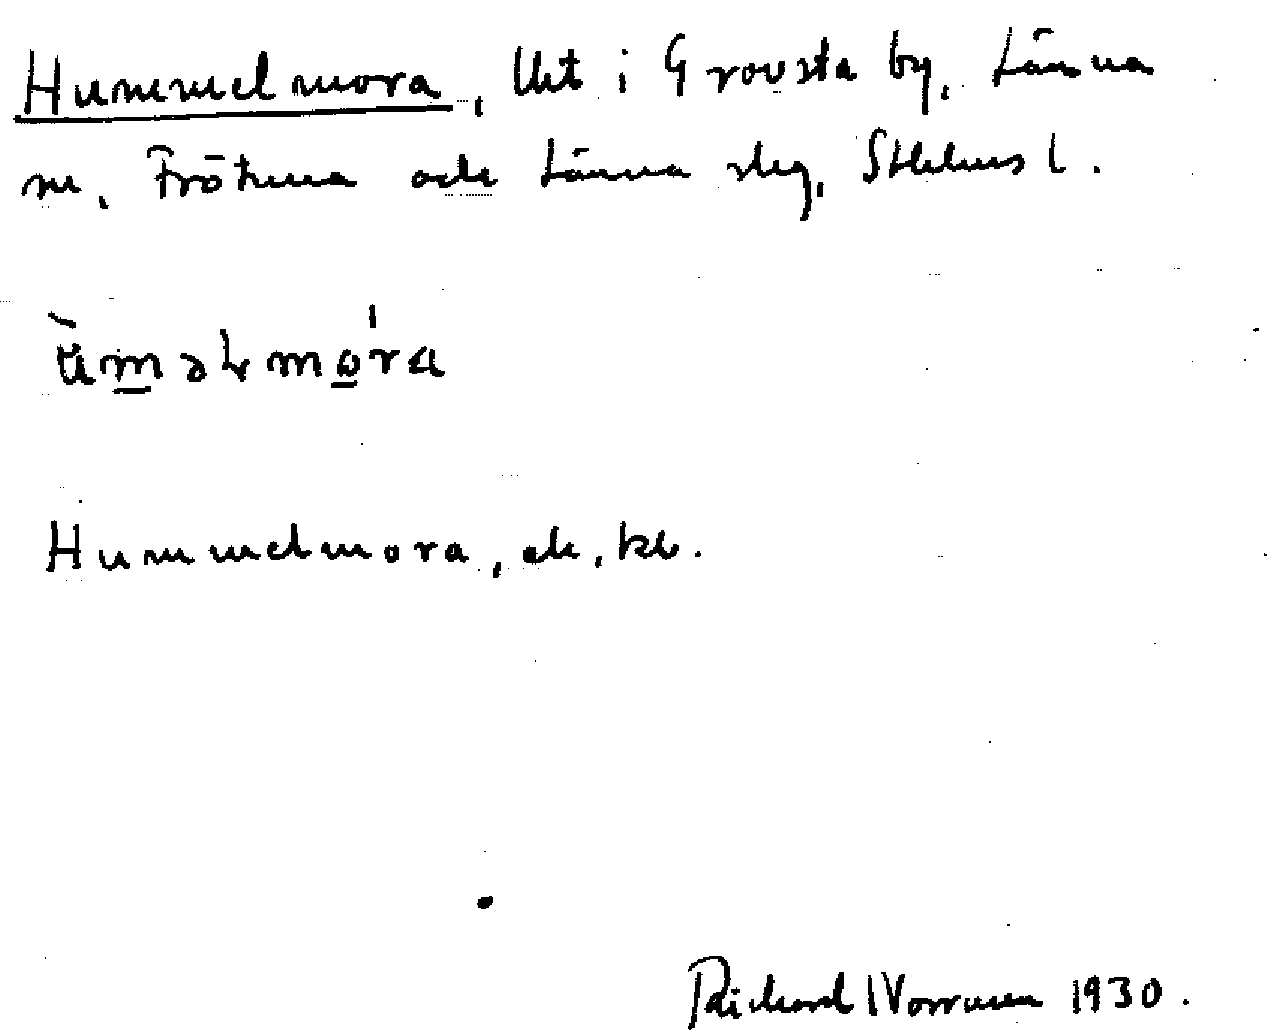 Hummelmora, lht i Grovsta by, Länna
sn, Frötuna och Länna slg, Sthlms l.
ùməɫmo̱ra
Hummelmora, ek. kb.
Richard Norrman 1930.